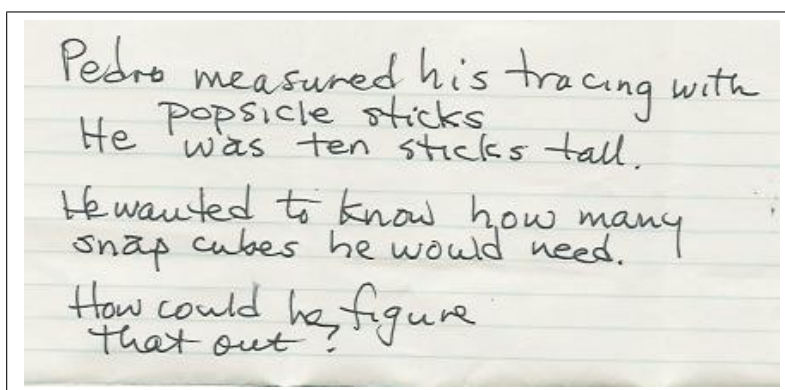 Pedro measured his tracing with
popsicle sticks
He was ten sticks tall.
He wanted to know how many
snap cubes he would need.
How could he figure
that out?